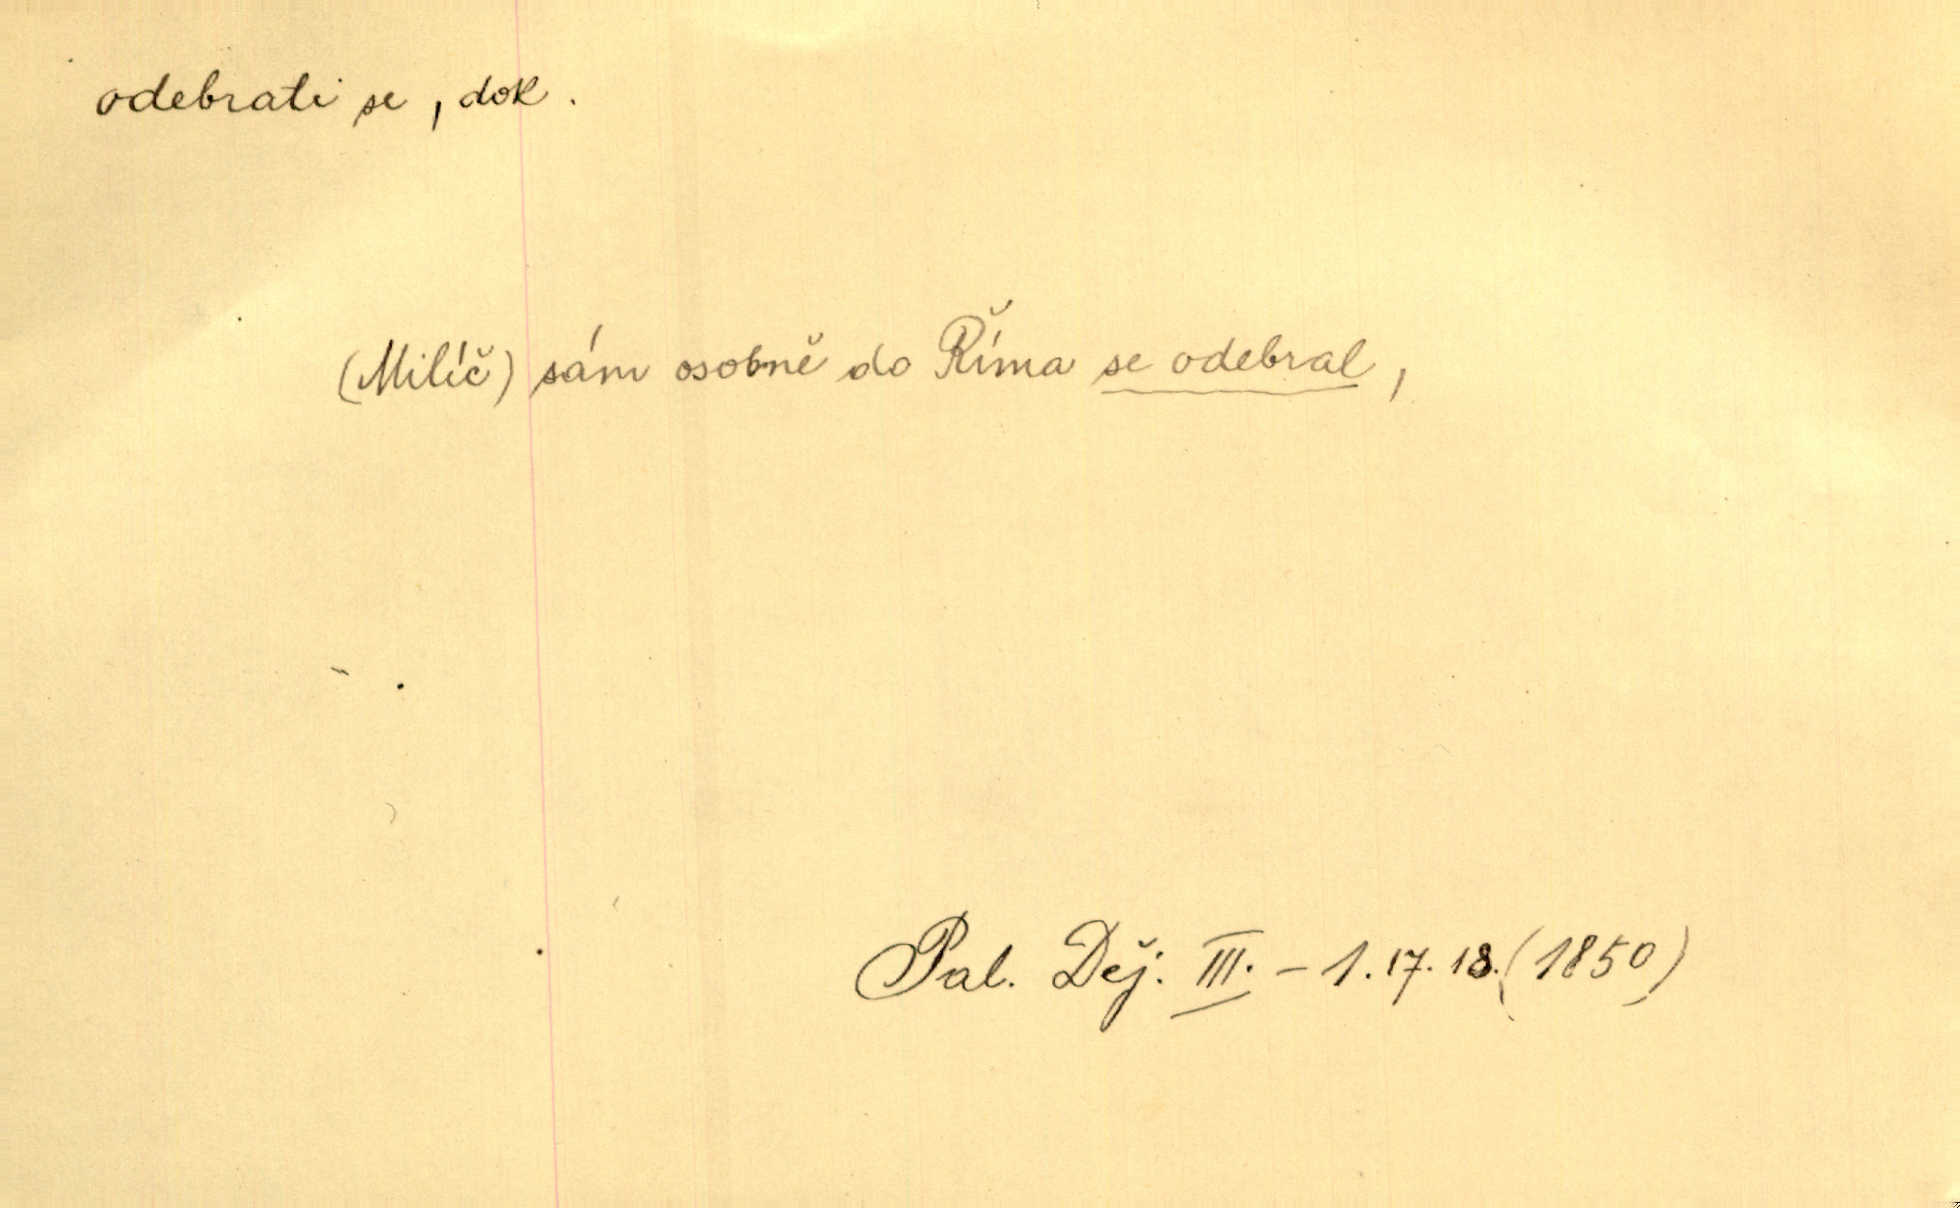 odebrati se, dok.
(Milíč) sám osobně do Říma se odebral,
Pal. Děj. III. – 1. 17. 18. (1850)